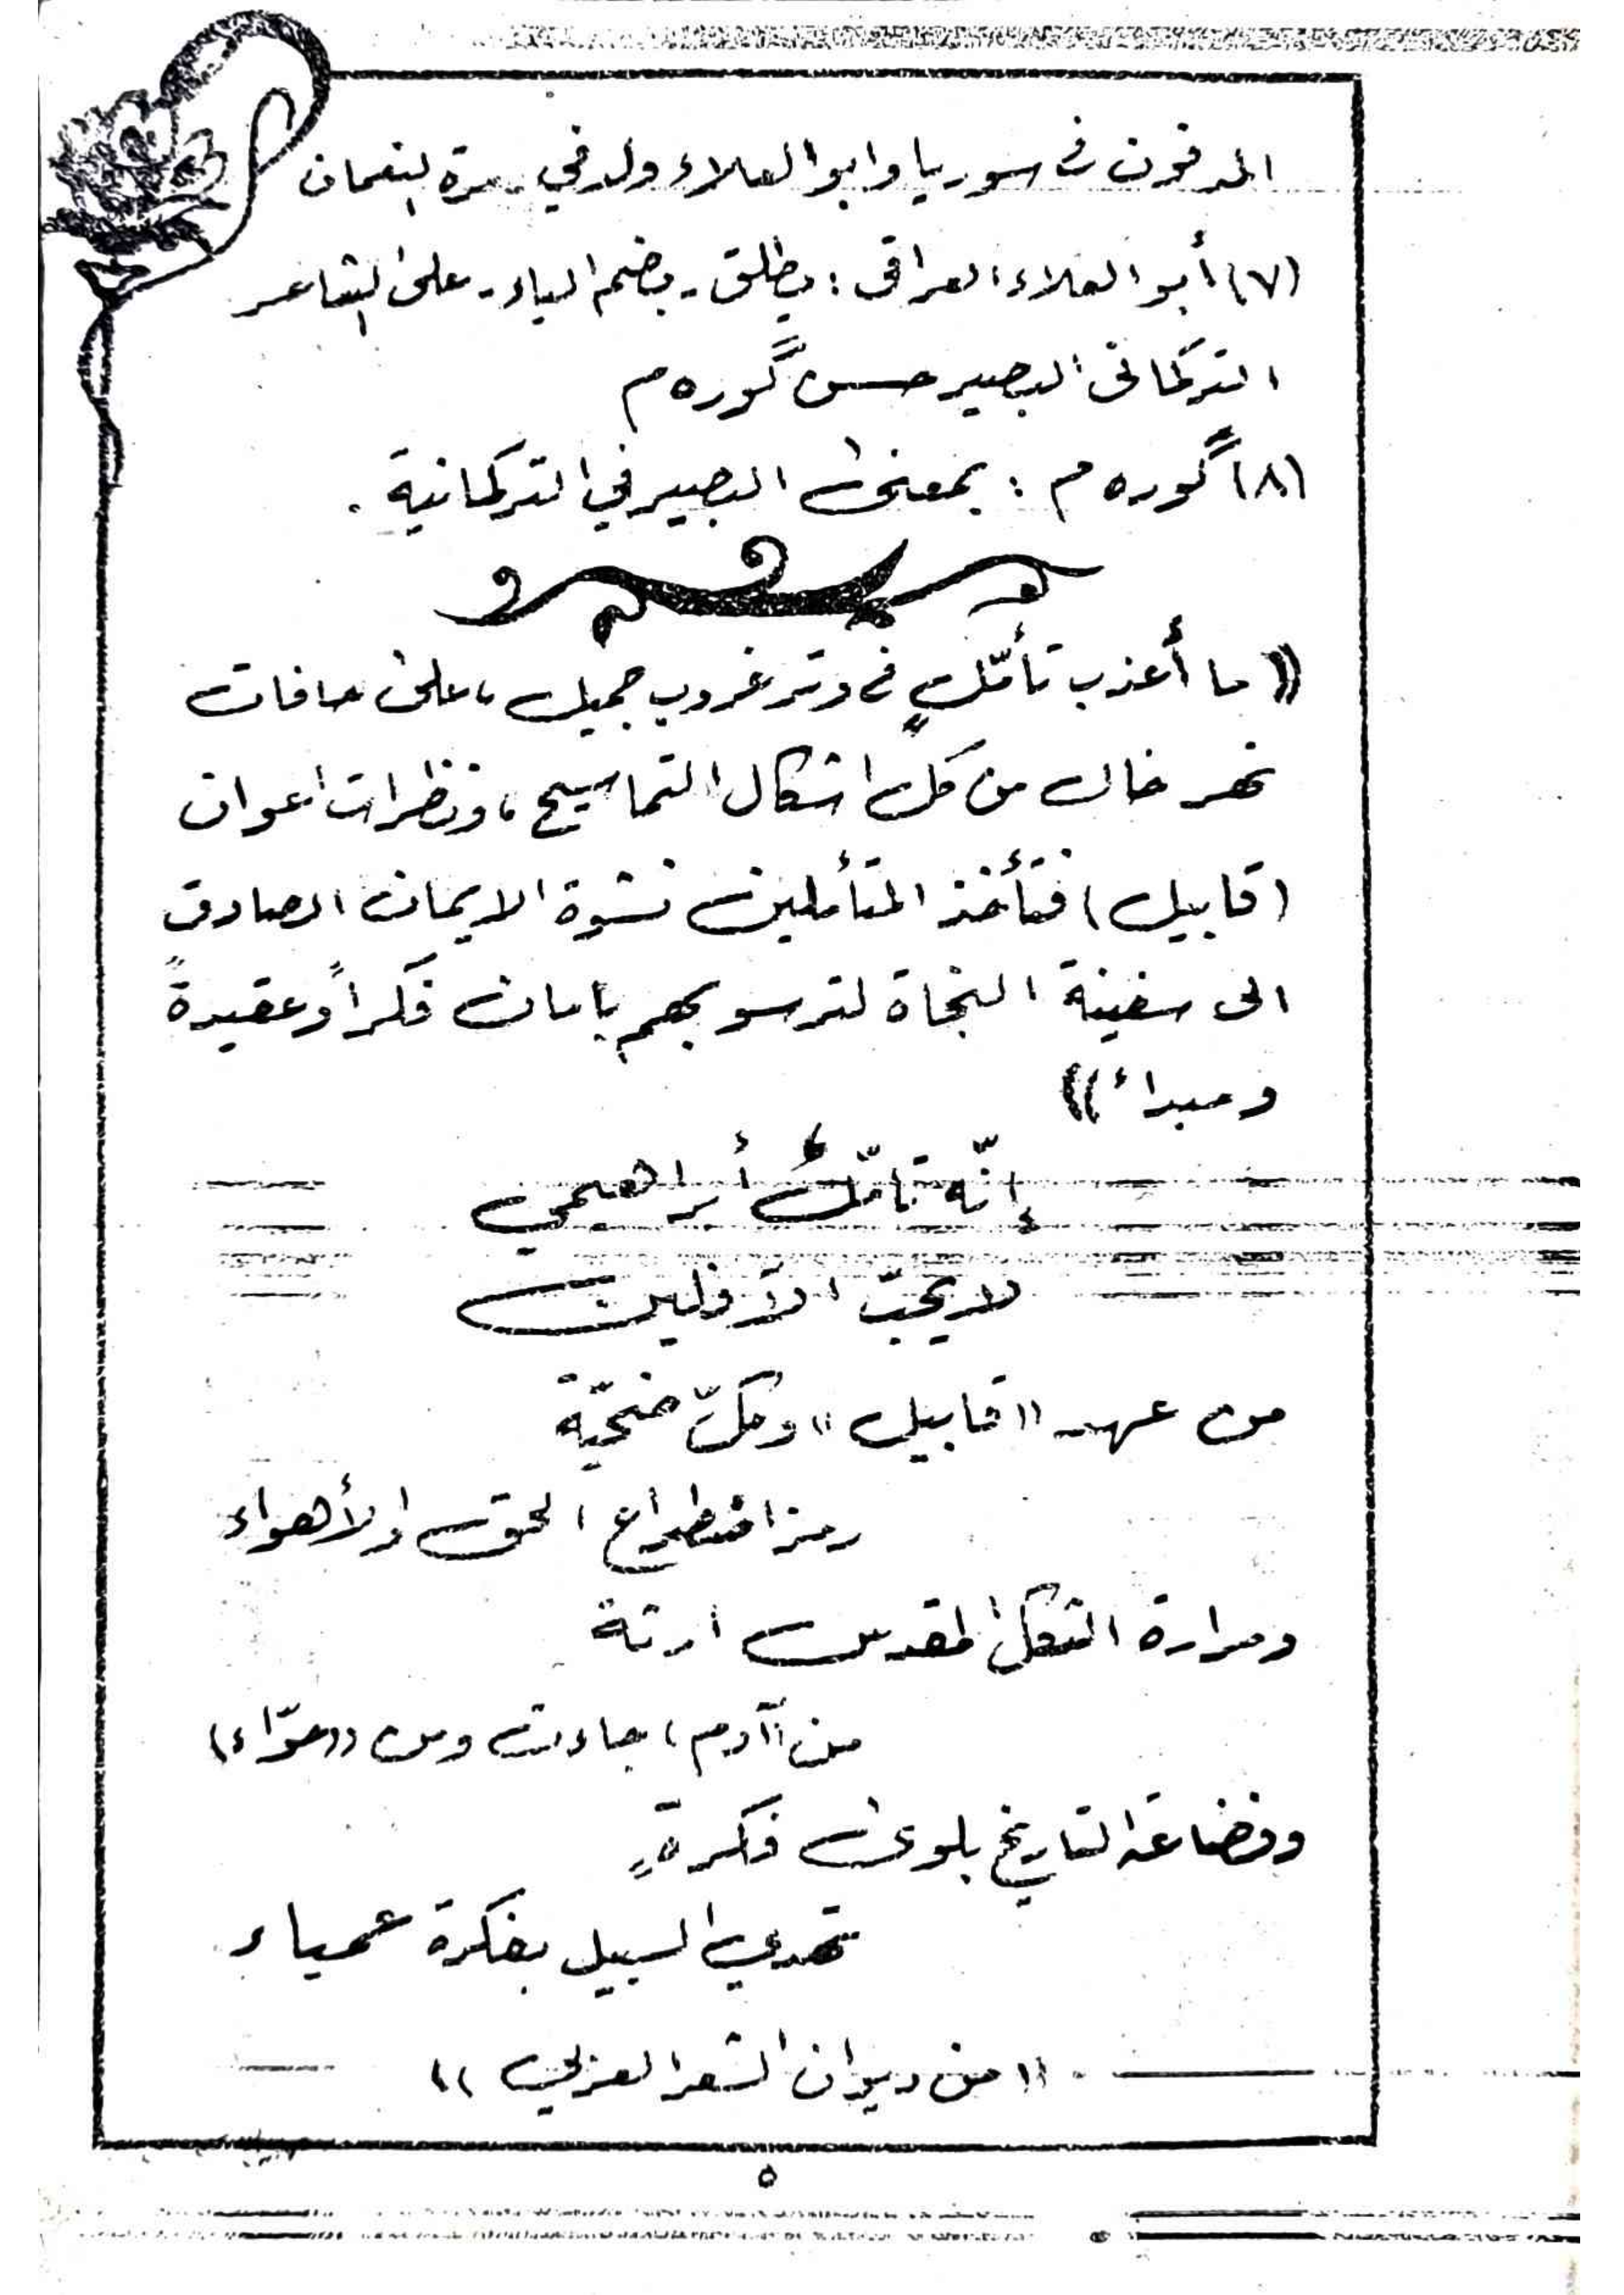 المدفون في سوريا وابو العلاء ولد في معرة النعمان
(٧) أبو العلاء العراقي : يطلق - بضم الياء - على الشاعر
التركماني البصير حسن گوره م
(٨) گوره م : بمعنى البصير في التركمانية .
(( ما أعذب تأمّلٍ في وتر غروب جميل ، على حافات
نهر خال من كل اشكال التماسيح ، ونظرات أعوان
(قابيل) فتأخذ المتأملين نشوة الايمان الصادق
الى سفينة النجاة لترسو بهم بأمان فكراً وعقيدةً
ومبداء ))
إنّه تامّلُ أبراهيمي
لا يحبّ الآفلين
من عهد ((قابيل)) وكلّ ضحيّة
رمز اضطراع الحق والأهواء
ومرارة الثكل المقدس ارثة
من ((آدم)) جاءت ومن ((حوّاء))
وفضاعة التاريخ بلوى فكرةٍ
تهدي السبيل بفكرة عمياء
(( من ديوان الشعر العربي ))
٥